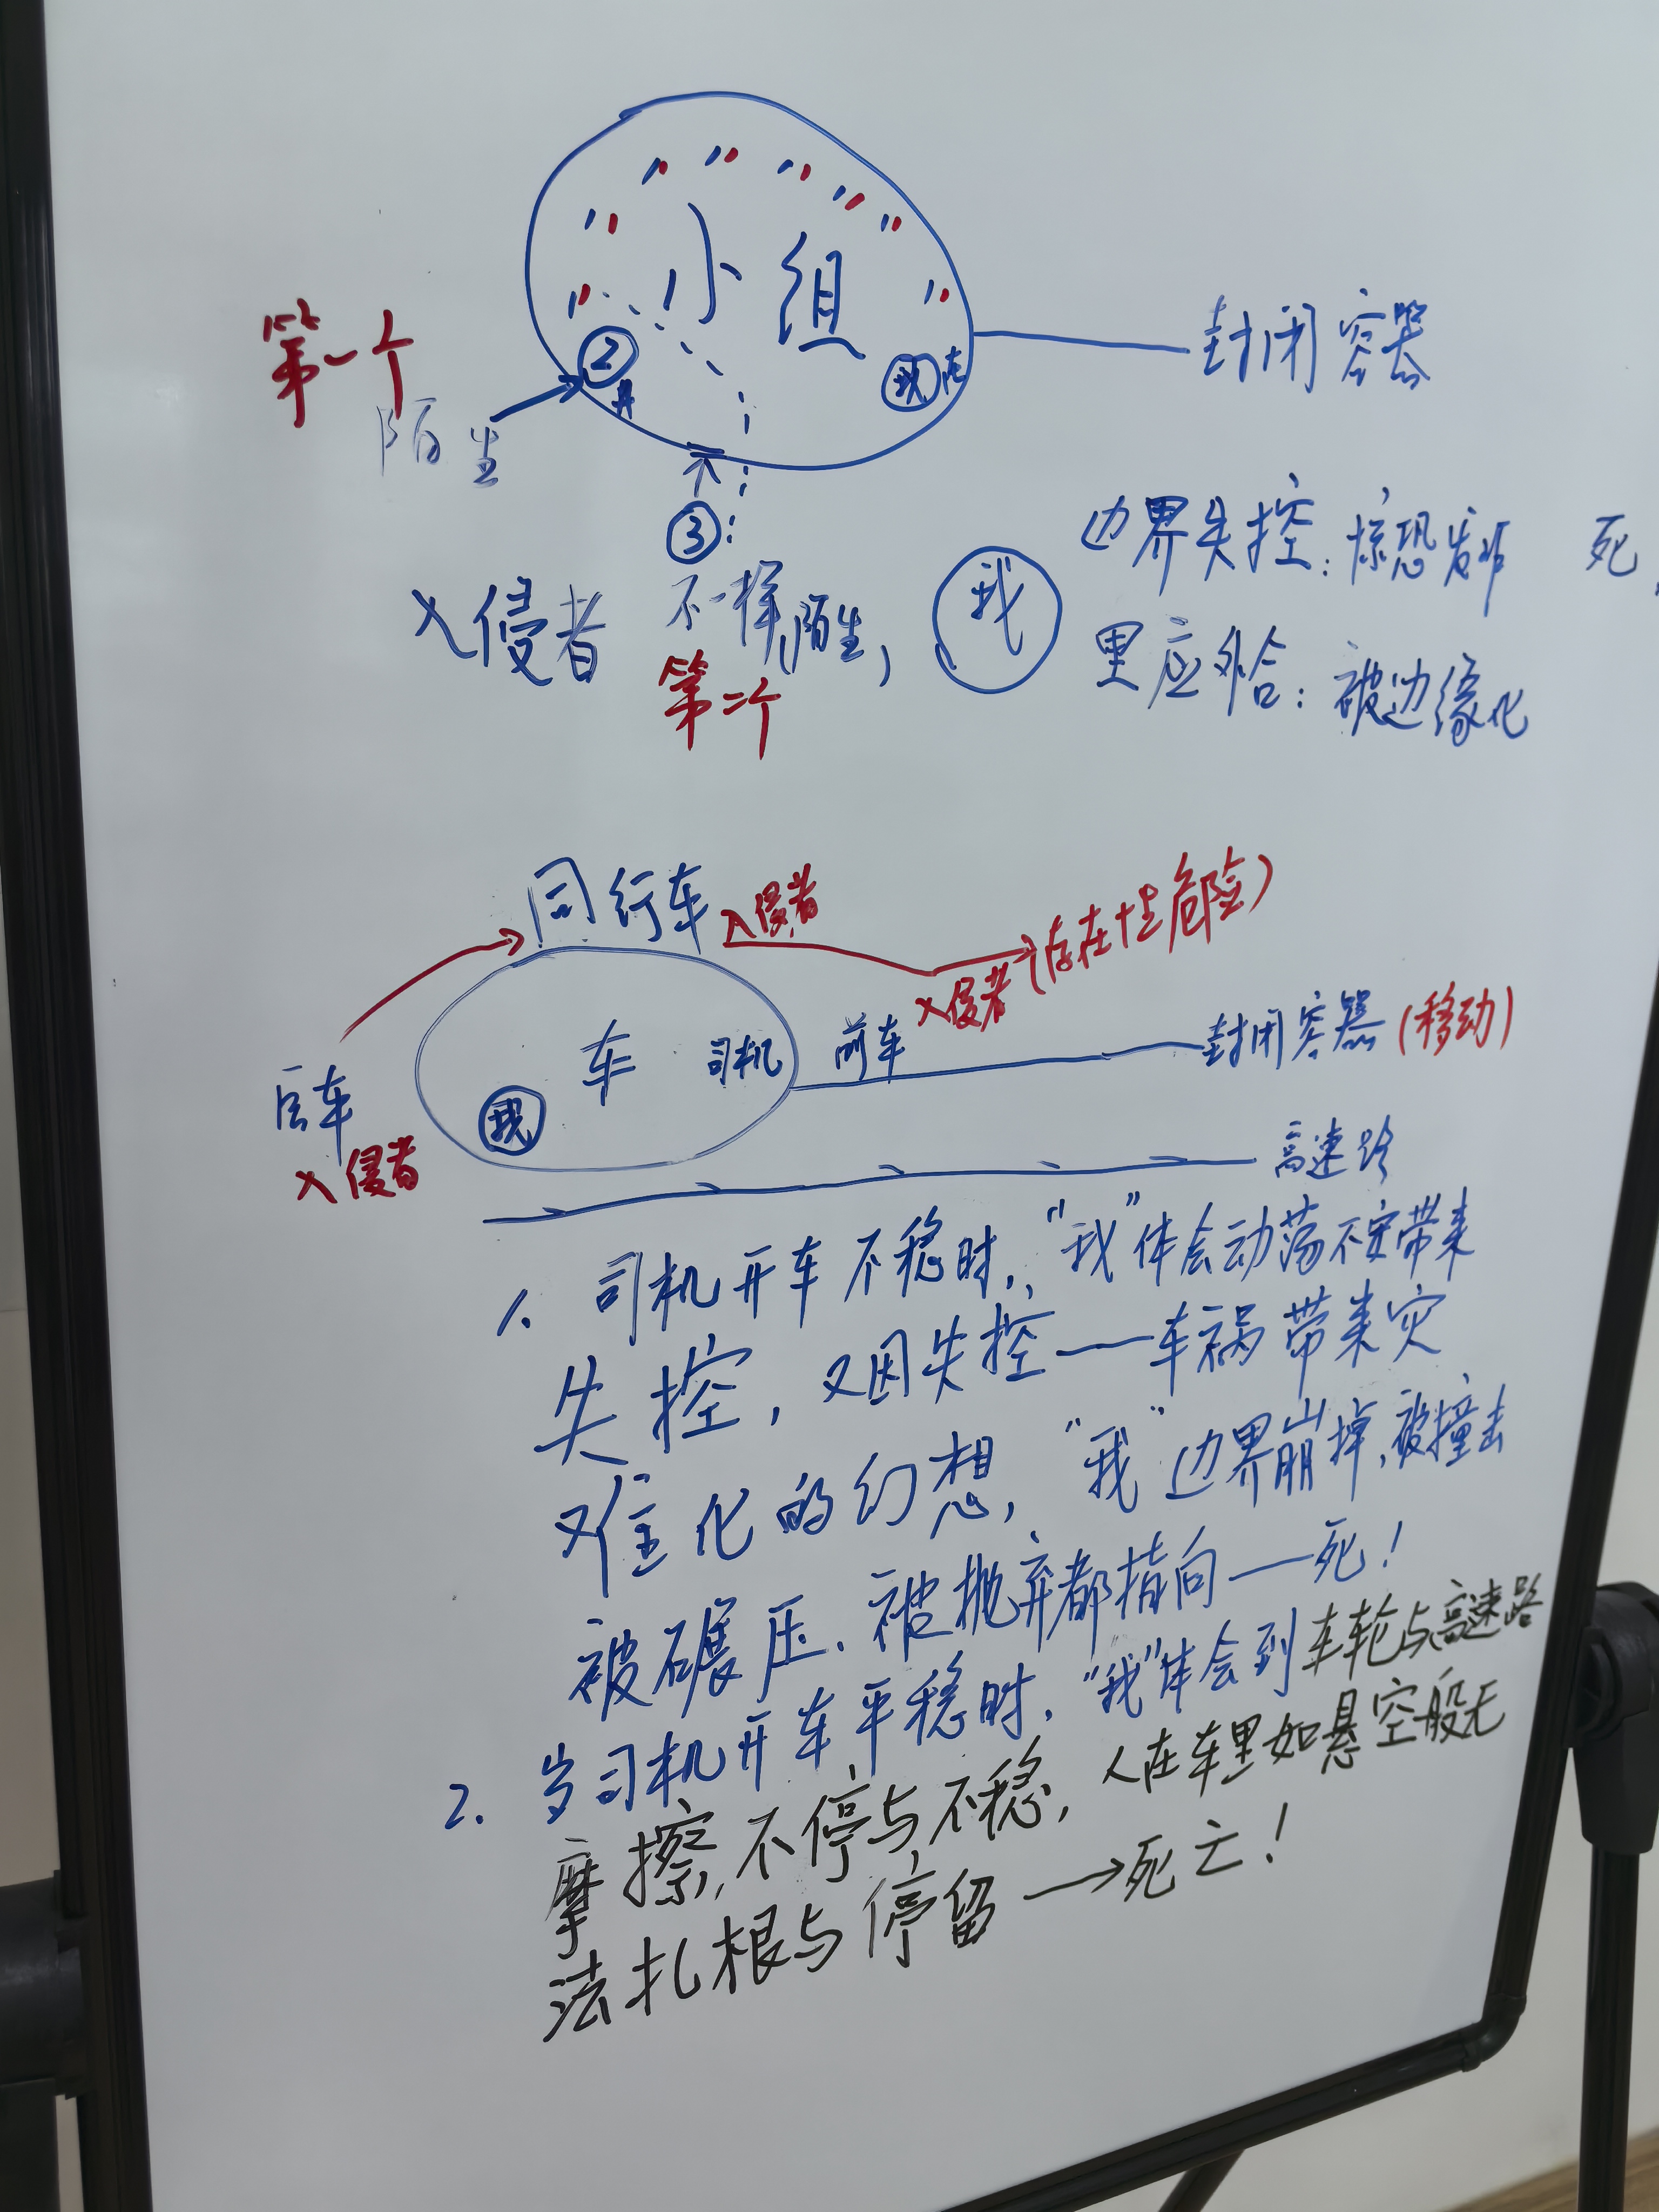 小组
第一个
陌生
②
我
封闭容器
③
入侵者
不一样陌生,
第二个
我
边界失控:惊恐发作 死,
里应外合:被边缘化
同行车
入侵者
入侵者(存在性危险)
车
司机
前车
封闭容器(移动)
后车
入侵者
我
高速路
1. 司机开车不稳时,“我”体会动荡不安带来
失控,又因失控——车祸带来灾
难化的幻想,“我”边界崩掉,被撞击
被碾压、被抛弃都指向——死!
2. 当司机开车平稳时,“我”体会到车轮与高速路
摩擦,不停与不稳,人在车里如悬空般无
法扎根与停留→死亡!